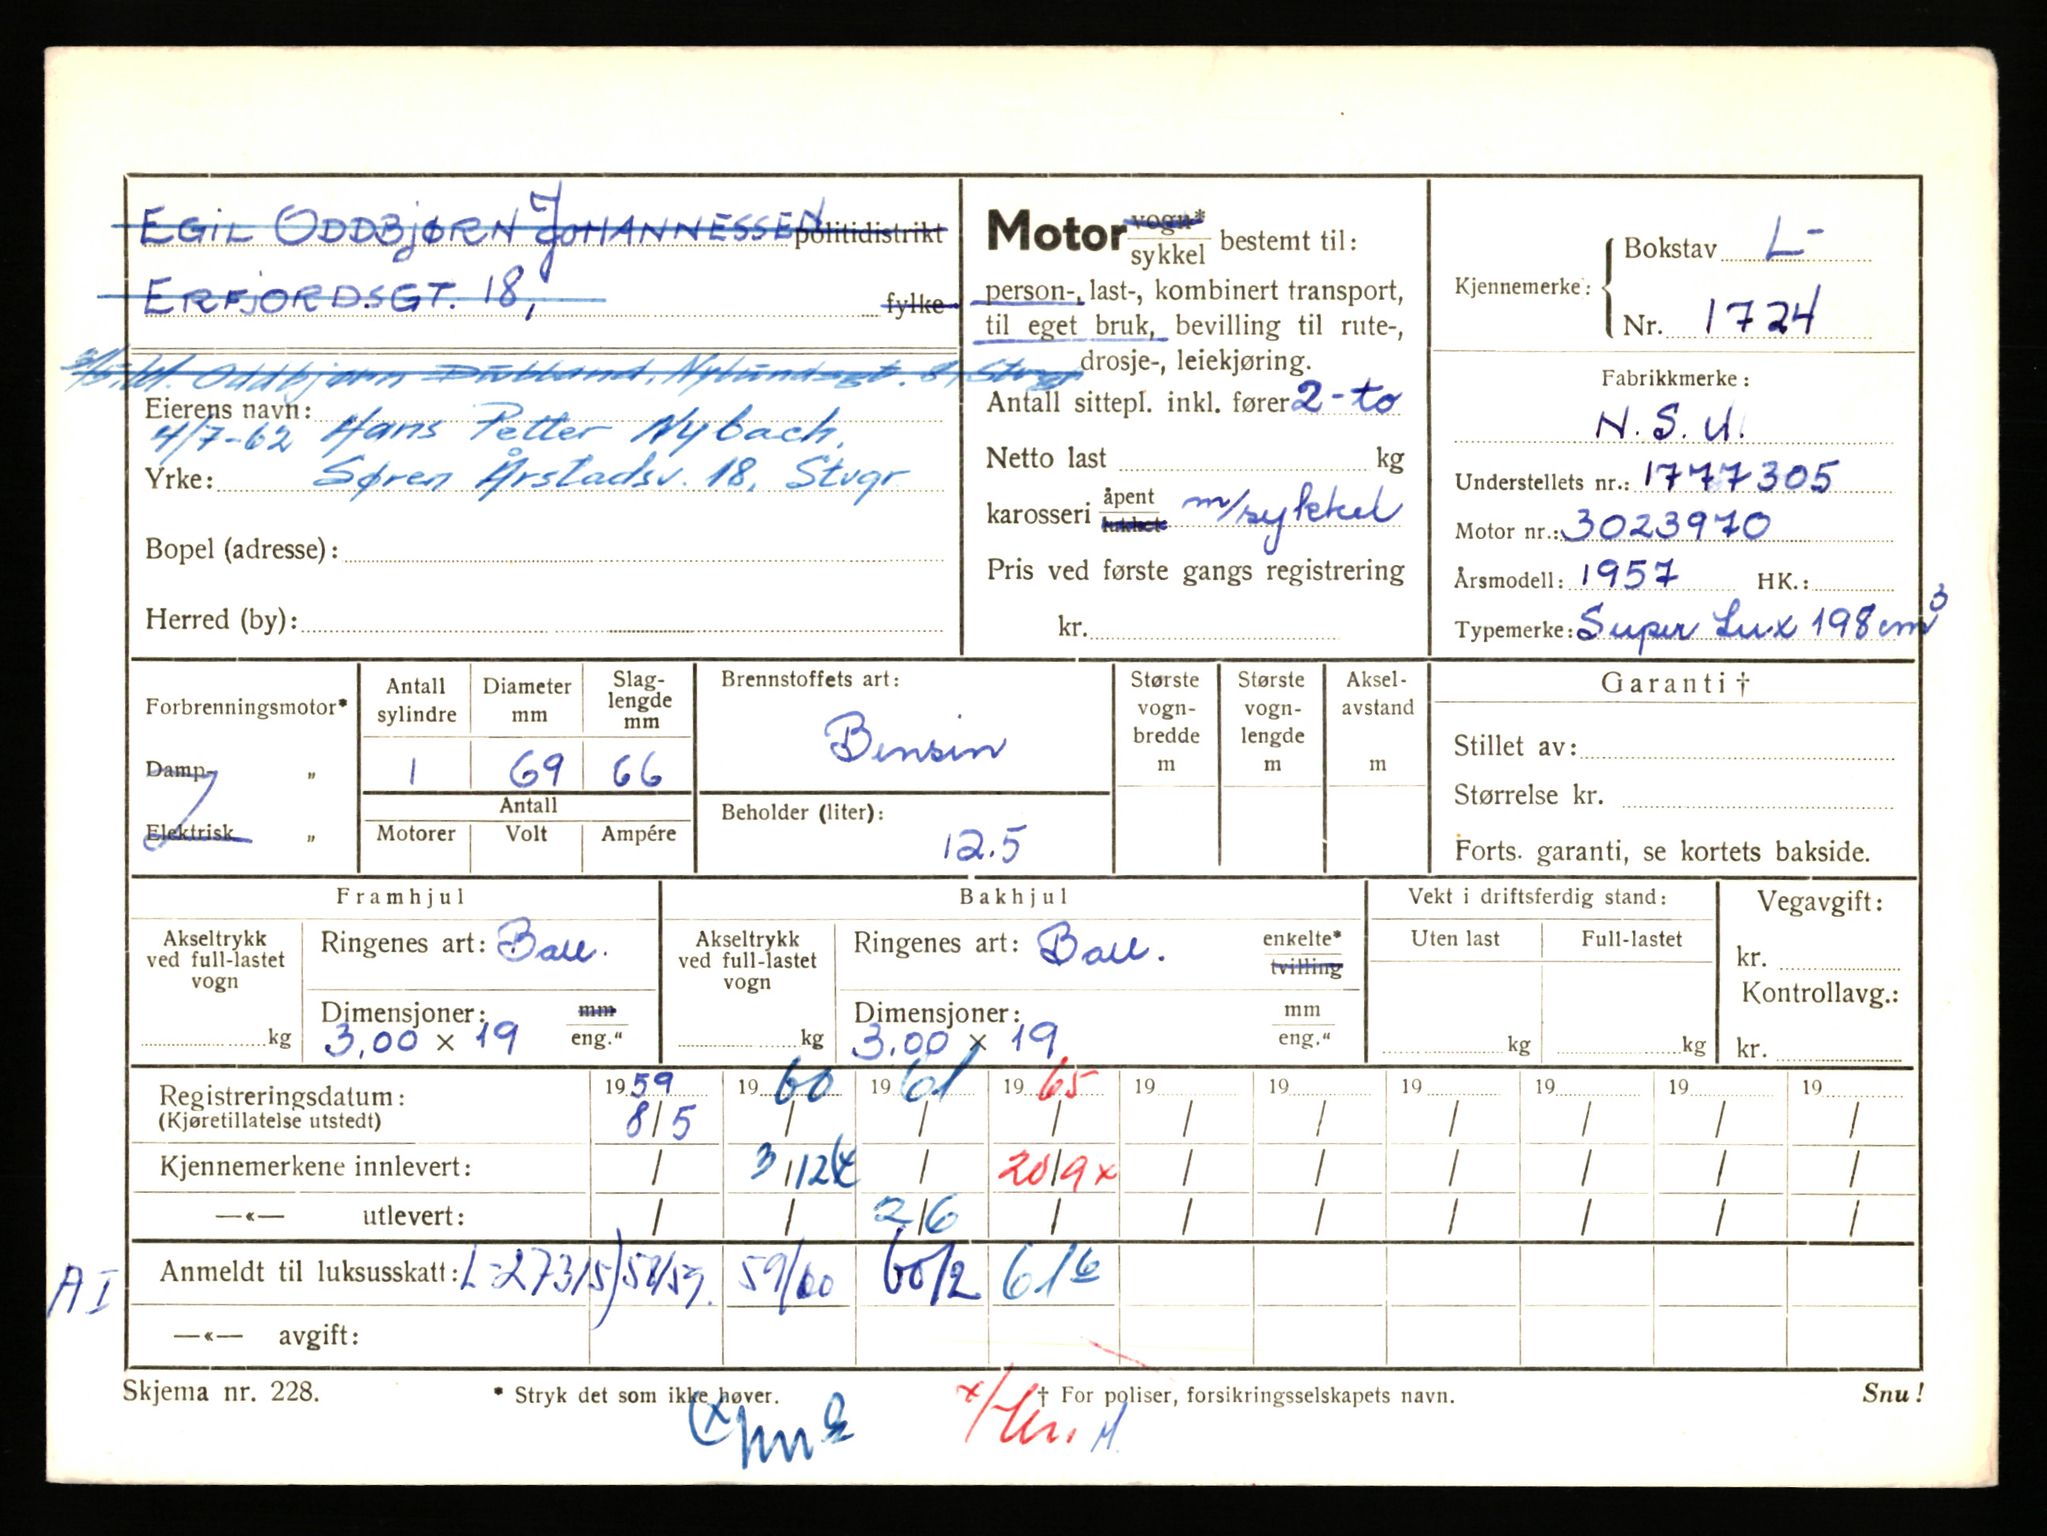 EGIL ODDBJØRN JOHANNESSEN politidistrikt
ERFJORDSGT. 18, fylke
Oddbjørn Dubland, Nylundsgt. 8, Stvgr
Eierens navn:
4/7-62 Hans Petter Nybach,
Yrke: Søren Årstadsv. 18, Stvgr
Bopel (adresse):
Herred (by):
Motor vogn* sykkel bestemt til:
person-, last-, kombinert transport,
til eget bruk, bevilling til rute-,
drosje-, leiekjøring.
Antall sittepl. inkl. fører 2-to
Netto last kg
karosseri åpent lukket m/sykkel
Pris ved første gangs registrering
kr.
Kjennemerke: Bokstav L-
Nr. 1724
Fabrikkmerke:
N.S.U.
Understellets nr.: 1777305
Motor nr.: 3023970
Årsmodell: 1957 HK.:
Typemerke: Super Lux 198 cm³
Forbrenningsmotor*
Damp- „
Elektrisk „
Antall sylindre
1
Diameter mm
69
Slaglengde mm
66
Antall
Motorer Volt Ampére
Brennstoffets art:
Bensin
Beholder (liter):
12.5
Største vogn-bredde m
Største vogn-lengde m
Aksel-avstand m
Garanti †
Stillet av:
Størrelse kr.
Forts. garanti, se kortets bakside.
Framhjul
Akseltrykk ved full-lastet vogn
kg
Ringenes art: Ball.
Dimensjoner: mm
3.00 x 19 eng."
Bakhjul
Akseltrykk ved full-lastet vogn
kg
Ringenes art: Ball. enkelte* tvilling
Dimensjoner: mm
3.00 x 19 eng."
Vekt i driftsferdig stand:
Uten last Full-lastet
kg kg
Vegavgift:
kr.
Kontrollavg.:
kr.
Registreringsdatum: 1959 1960 1961 1965 19 19 19 19 19 19
(Kjøretillatelse utstedt) 8/5 / / / / / / / / /
Kjennemerkene innlevert: / 3/12 x / 20/9 x / / / / / /
—«— utlevert: / / 2/6 / / / / / / /
AI Anmeldt til luksusskatt: L-27315) 58/59. 59/60 60/2 61/6
—«— avgift:
Skjema nr. 228. * Stryk det som ikke høver. † For poliser, forsikringsselskapets navn. Snu!